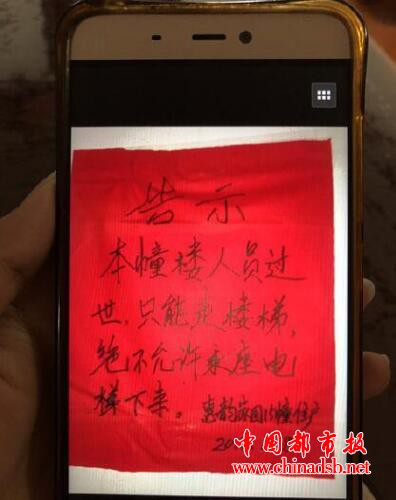 告示
本幢楼人员过
世,只能走楼梯,
绝不允许乘座电
梯下来。惠韵家园15幢住户
20
中国都市报
www.chinadsb.net